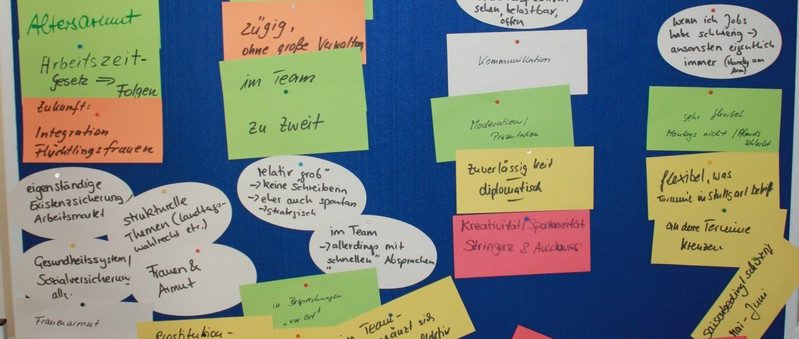 Altersarmut
Arbeitszeit-
gesetz ⇒
Folgen
Zukunft:
Integration
Flüchtlingsfrauen
eigenständige
Existenzsicherung
Arbeitsmarkt
strukturelle
Themen (Landtags-
wahlrecht etc.)
Gesundheitssystem/
Sozialversicherung
allg.
Frauen &
Armut
Frauenarmut
Prostitution-
zügig,
ohne große Verwaltung
im Team
zu zweit
relativ groß"
→ keine Schreiberin
→ eher auch spontan
→ strategisch
im Team
→ allerdings mit
"schnellen" Absprachen"
in Besprechungen
vor Ort
im Team-
sehen belastbar,
offen
Kommunikation
Moderation/
Präsentation
Zuverlässigkeit
diplomatisch
Kreativität/Spontaneität
Stringenz & Ausdauer
wenn ich Jobs
habe schwierig →
ansonsten eigentlich
immer (Handy am
sehr flexibel
Montags nicht / Abends
schlecht
flexibel, was
Termine in Stuttgart betrifft
andere Termine
Grenzen
Mai - Juni